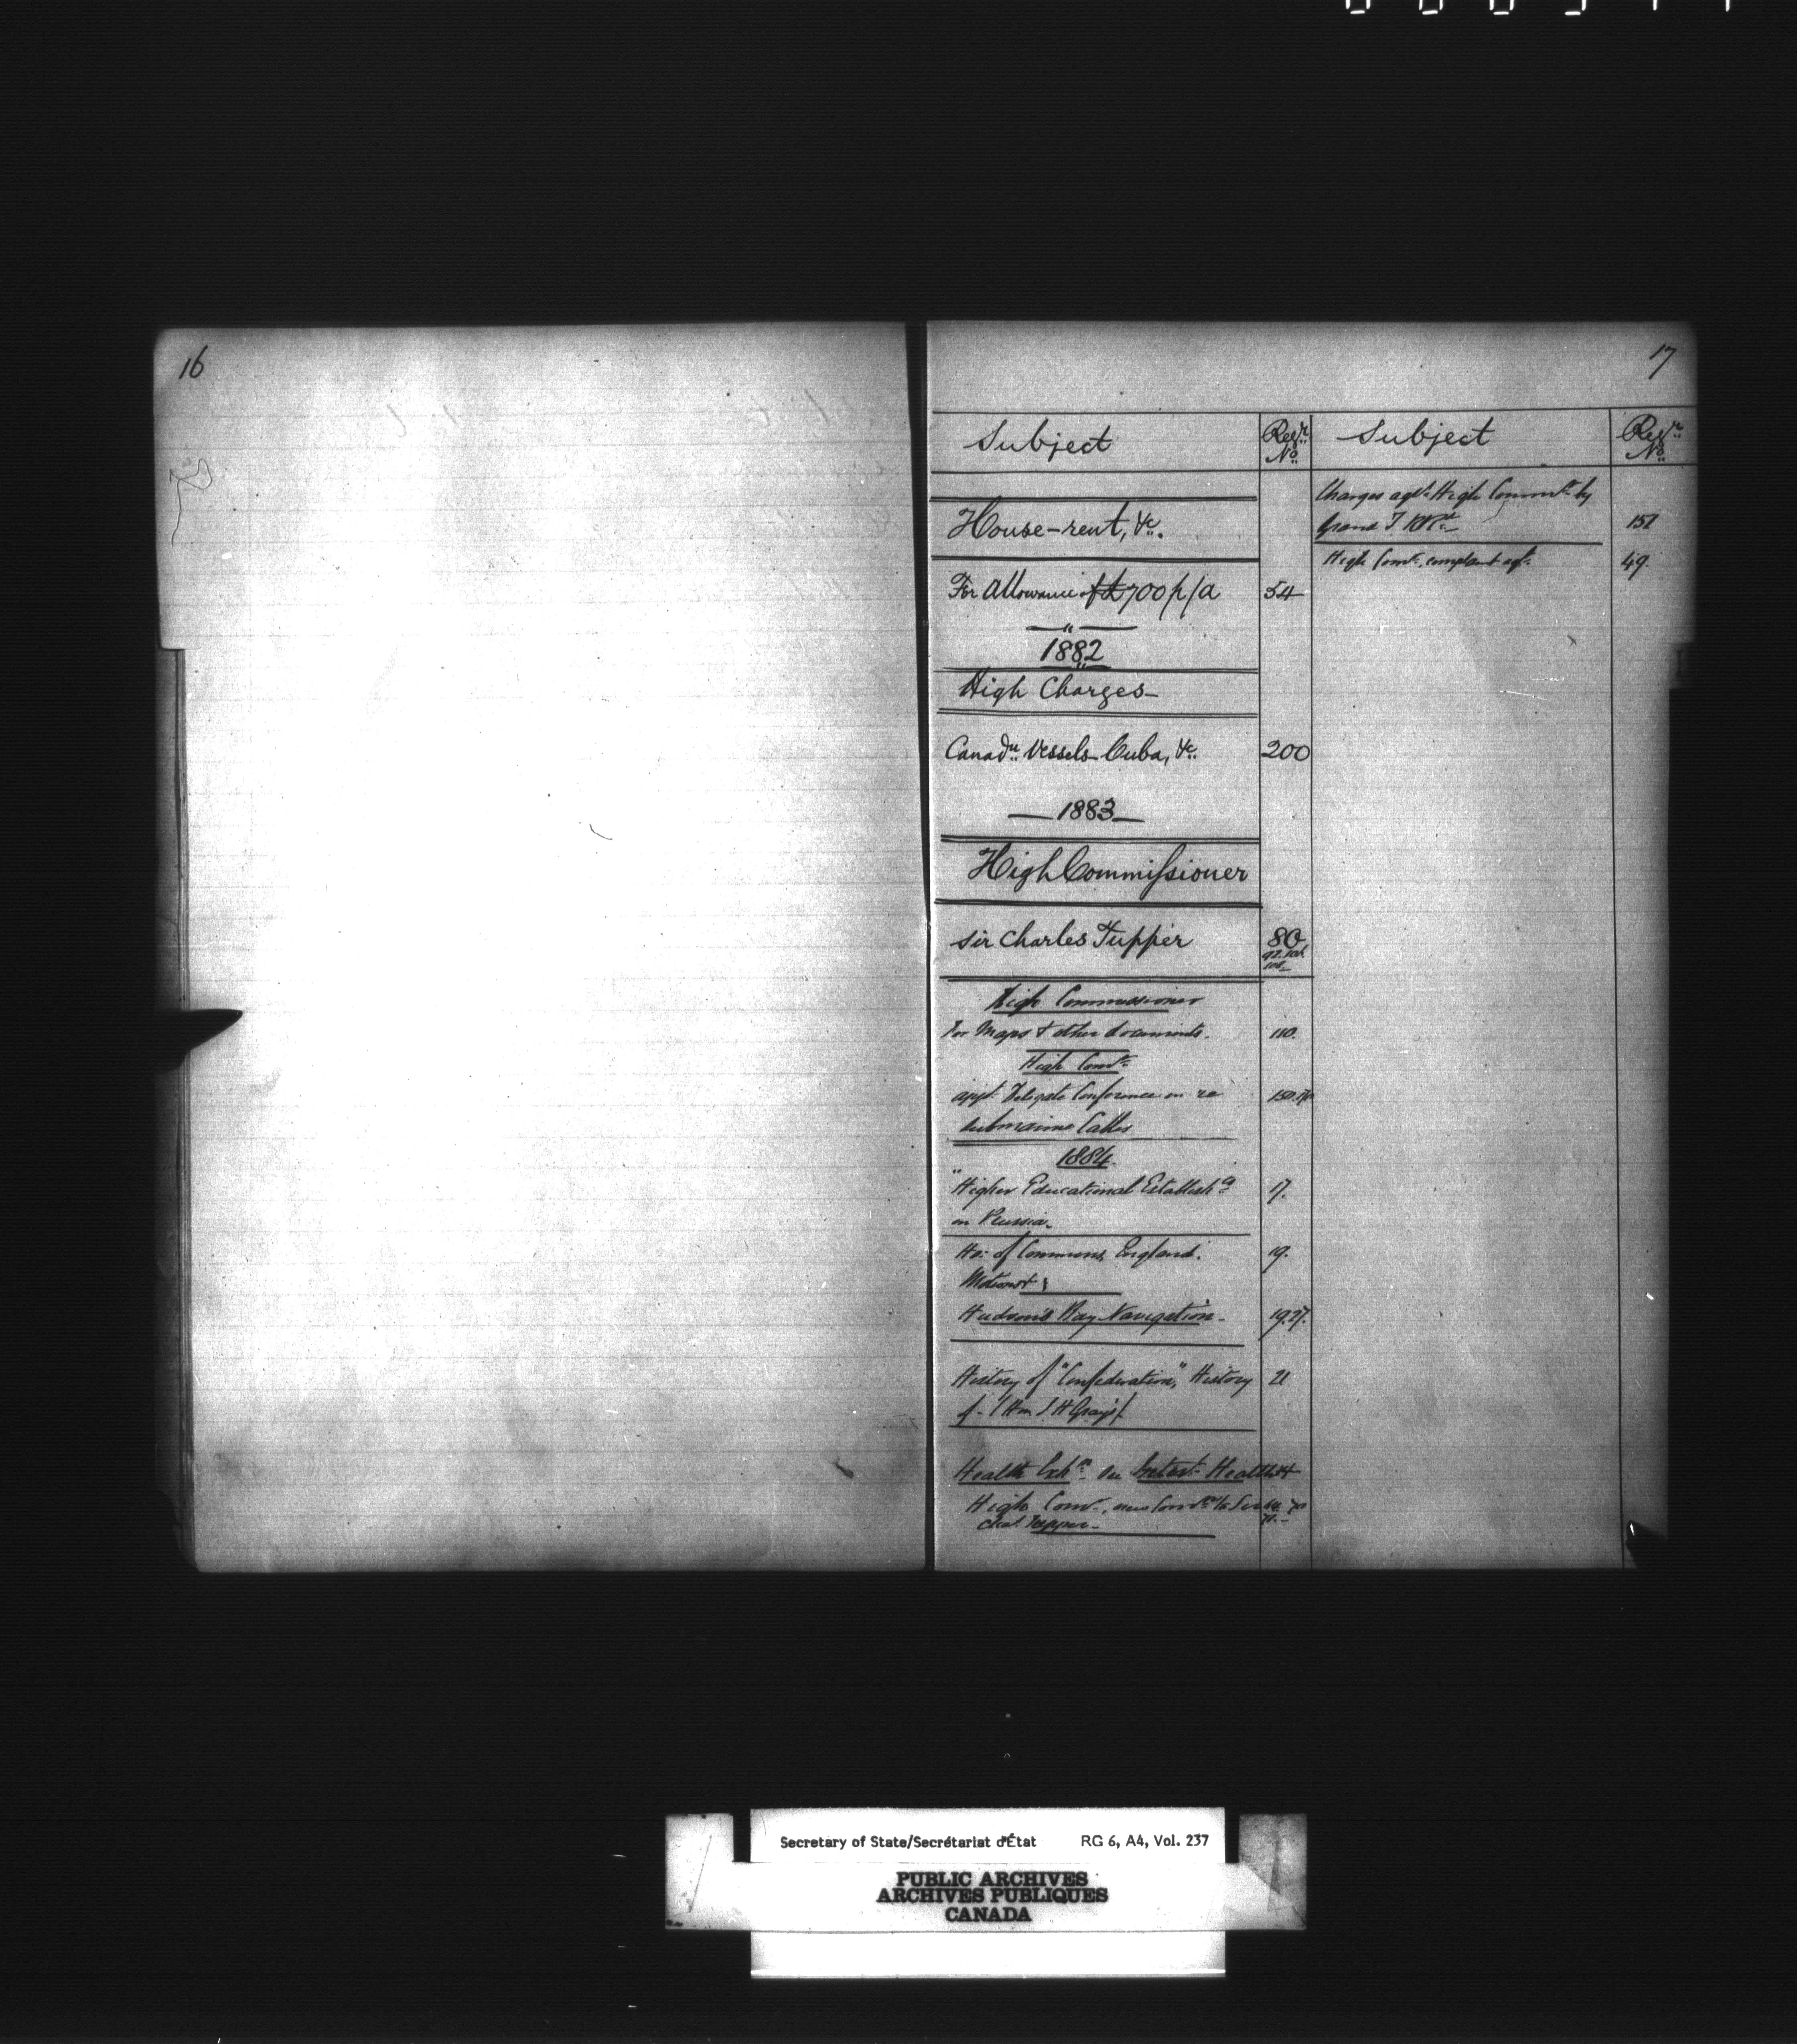 16
17
Subject
Regr. No.
Subject
Regr. No.
House-rent, &c.
For Allowance of £700 p/a 54
1882
High Charges
Canadn. Vessels Cuba, &c. 200
1883
High Commissioner
Sir Charles Tupper 80
High Commissioner
For Maps & other documents. 110.
High Comr.
appt. Delegate Conference in re 150.
Submarine Cables
1884
"Higher Educational Establishts 17.
in Russia.
Ho: of Commons, England. 19.
Motions
Hudson's Bay Navigation. 19.27.
History of "Confederation," History 21
of - (Hon J H Gray's)
Health Exhn. See Internt. Health 34
High Comr., new Comn. to Sir
Chas. Tupper
Charges agst. High Commr. by
Grand T RRd. 151
High Comr. complaint agt. 49.
Secretary of State/Secrétariat d'État RG 6, A4, Vol. 237
PUBLIC ARCHIVES
ARCHIVES PUBLIQUES
CANADA